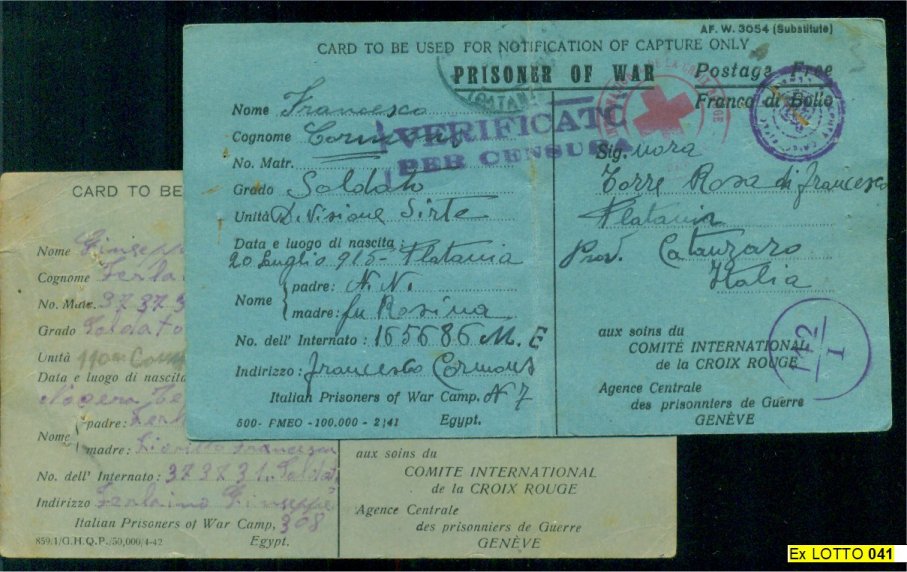 AF. W. 3054 (Substitute)
CARD TO BE USED FOR NOTIFICATION OF CAPTURE ONLY
PRISONER OF WAR
Postage Free
Franco di Bollo
VERIFICATO
PER CENSURA
Nome Francesco
Cognome
No. Matr.
Grado Soldato
Unità Divisione Sirte
Data e luogo di nascita :
20 Luglio 915 - Platania
Nome
padre: N. N.
madre: fu Rosina
No. dell' Internato : 165686 M. E
Indirizzo : Francesco
Italian Prisoners of War Camp. N 7
500- FMEO -100.000 - 2/41 Egypt.
Sig.nora
Torre Rosa di Francesco
Platania
Prov. Catanzaro
Italia
aux soins du
COMITÉ INTERNATIONAL
de la CROIX ROUGE
Agence Centrale
des prisonniers de Guerre
GENÈVE
CARD TO BE
Nome
Cognome
No. Matr.
Grado Soldato
Unità
Data e luogo di nascita
Nome
padre:
madre:
No. dell' Internato : 373731
Indirizzo
Italian Prisoners of War Camp, 308
859.1/G.H.Q.P./50,000/4-42 Egypt.
aux soins du
COMITE INTERNATIONAL
de la CROIX ROUGE
Agence Centrale
des prisonniers de Guerre
GENÈVE
Ex LOTTO 041